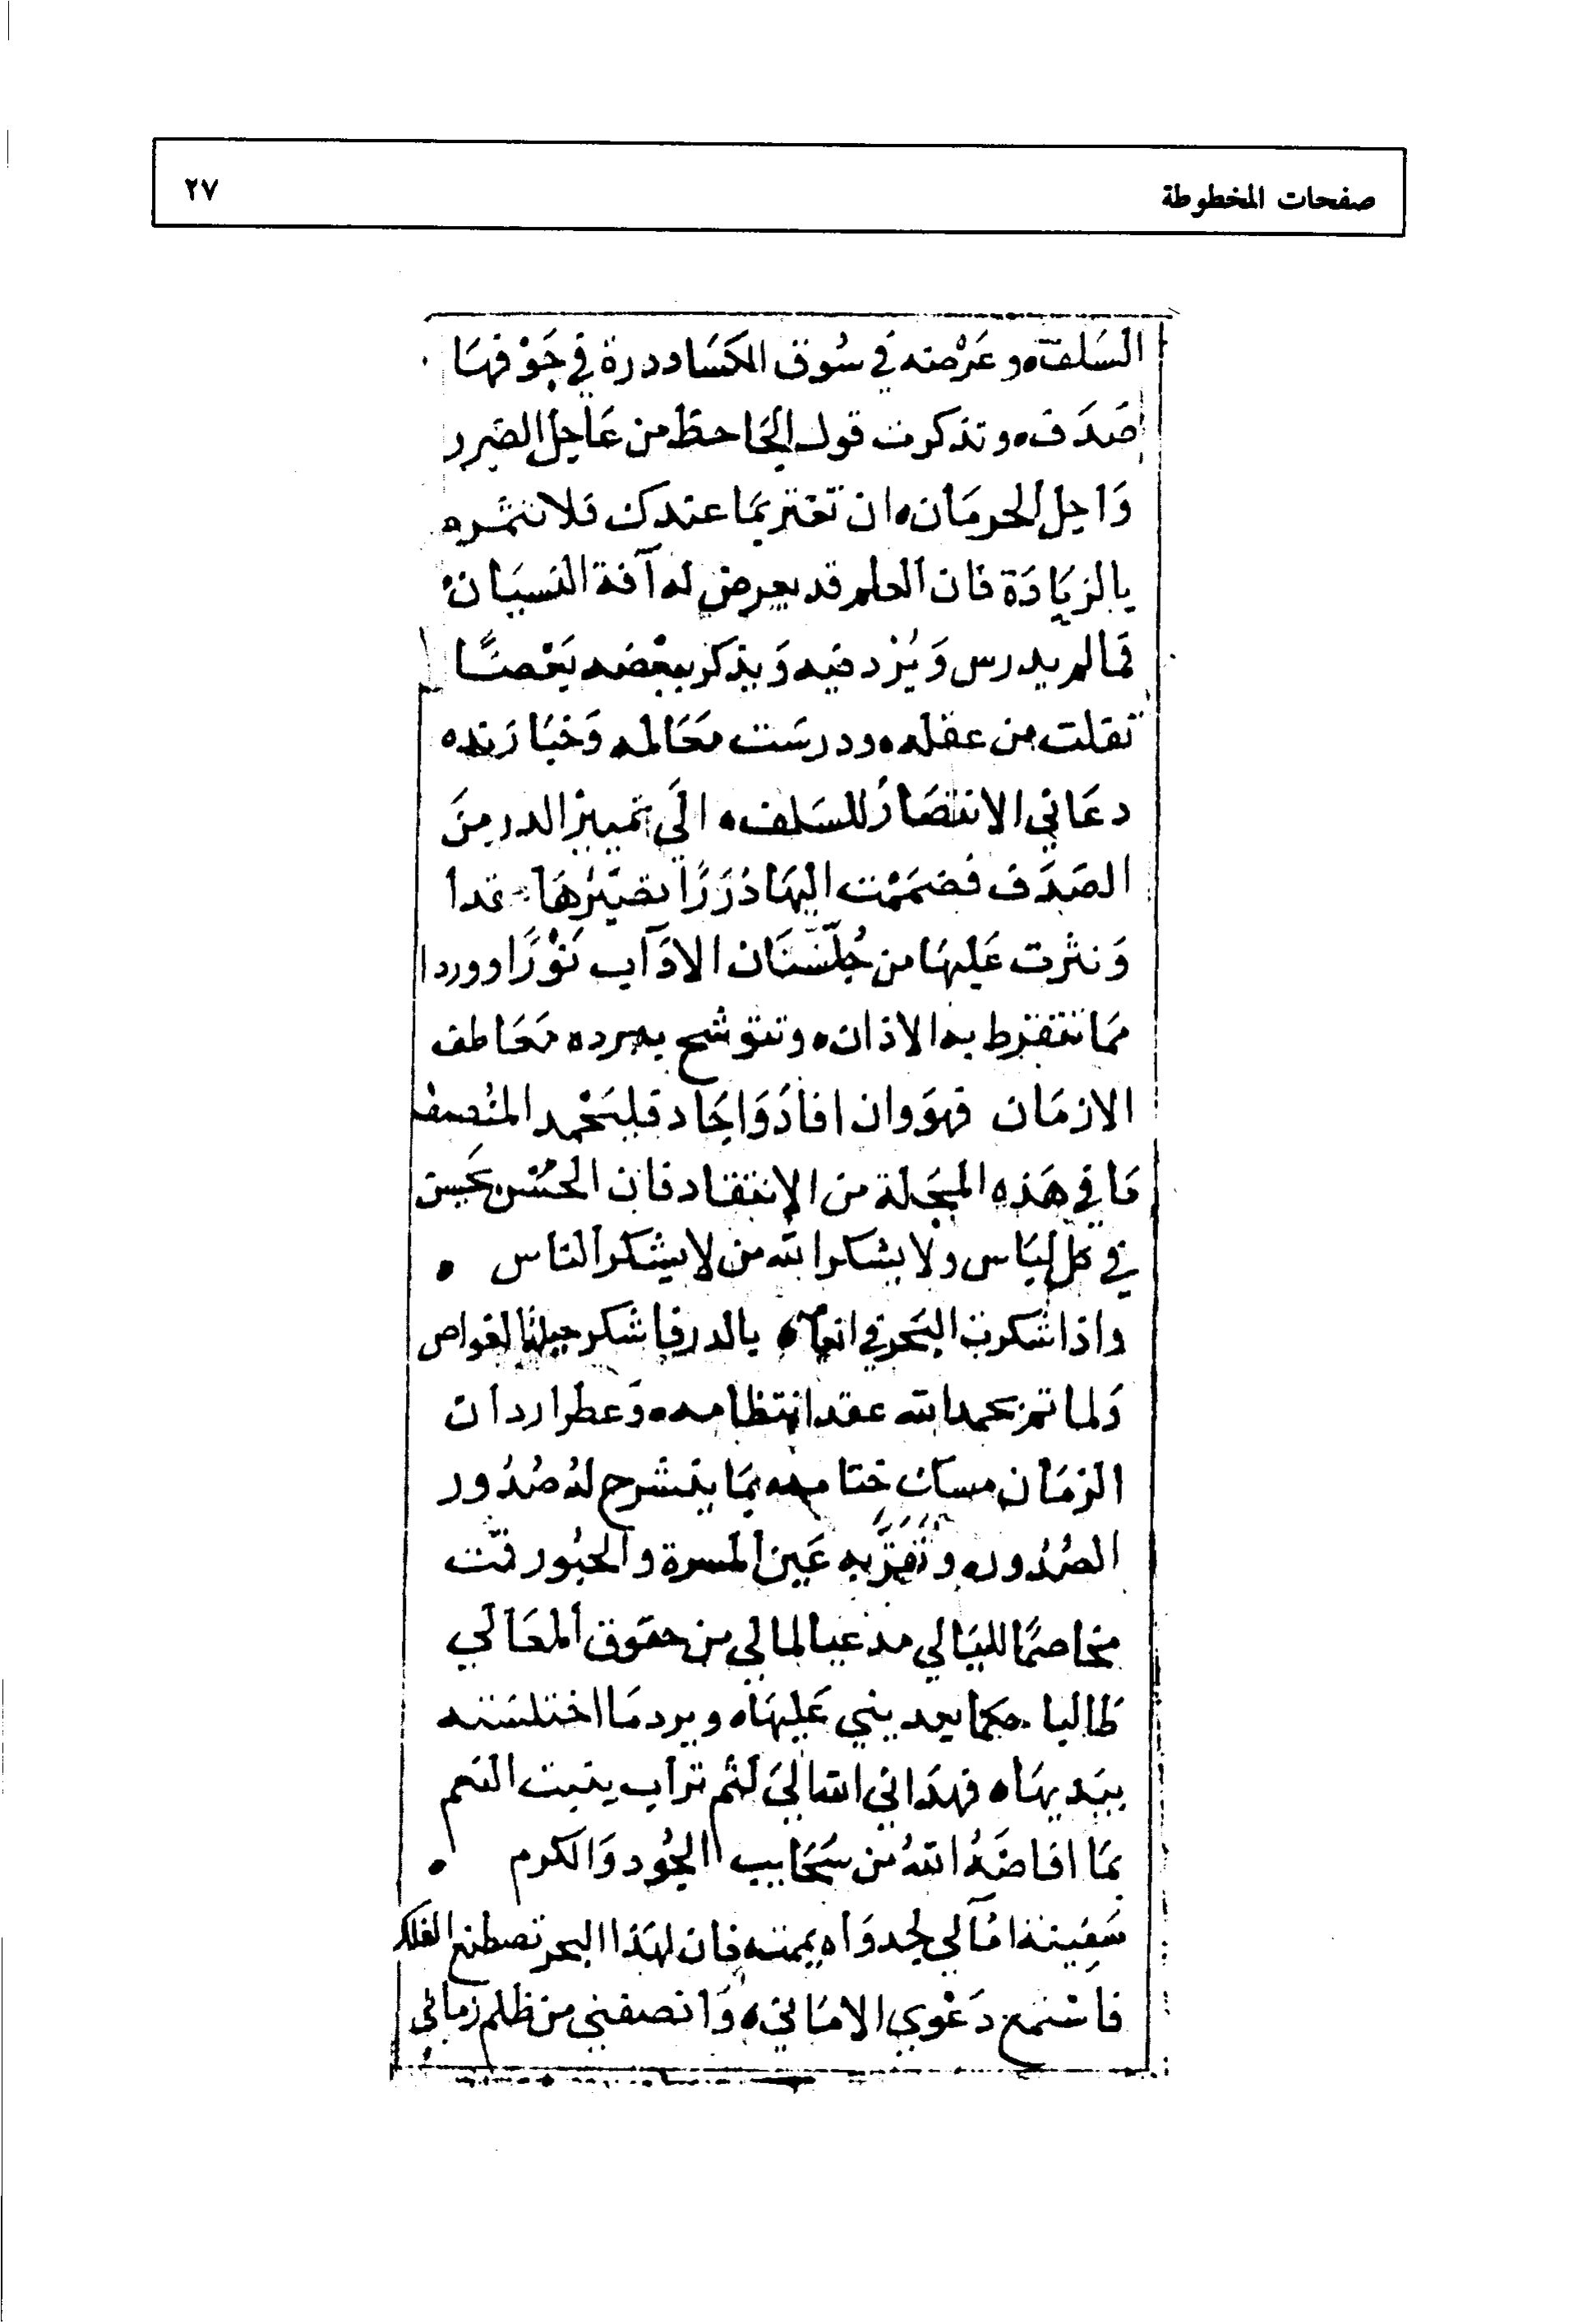 صفحات المخطوطة
٢٧
السَلف ه وعَرْضه في سُوق الكسَاد درة في جَوْفهَا
صَدَف ه وتذكرت قول الجَاحظ من عَاجل الضرر
وَاجل الحرمَان ه ان تغتر بمَا عندك فلا تثمره
بالزيَادَة فان العلم قد يعرض له آفة النسيَان
فمَا لم يدرس وَيُزد فيه وَيذكر ببعْضه بَعْضًا
تفلت من عقله ه ودرسَت مَعَالمه وَخبَا زنده
دعَاني الانتصَار للسَلف ه الَى تمييز الدر منَ
الصَدَف فضمَمْت اليهَا دُرَرًا تصيّرهَا عقدا
وَنثرت عَليهَا من جُلّسْتَان الادَآب نَوْرًا ووردا
ممَا تتقرط به الاذان ه وتتوشح ببرده مَعَاطف
الازمَان فهوَ وان افادَ وَاجَاد فليَحْمد المُنْصف
مَا في هَذه المجَلة من الانتقاد فان الحُسْن حَسن
في كل لبَاس ولا يشكر الله من لا يشكر الناس ه
واذا شكرت البَحر في انعامه بالدر فاشكر حيلة الغواص
وَلما تم بحمد الله عقد انتظامه ه وَعطر اردان
الزمَان مسك ختامه ه بمَا ينشرح لهُ صُدُور
الصُدُور ه وتَقرّ به عَين المسرة والحبُور قمْت
مخاصمًا لليَالي مدعيا لمالي من حقوق المعَالي
طَالبا حكما يعديني عَليهَا ه ويرد مَا اختلسَته
بيَديهَا ه فهدَاني الله الىَ لَثم ترَاب ينبت النعم
بمَا افاضَهُ اللهُ من سَحَايب الجُود وَالكرم ه
سَفينة امَآلي لجدوَاه يممته فان لهَذا البحر تصطنع الفلك
فاسْتمع دَعْوي الامَاني ه وَانصفني من ظلم زماني